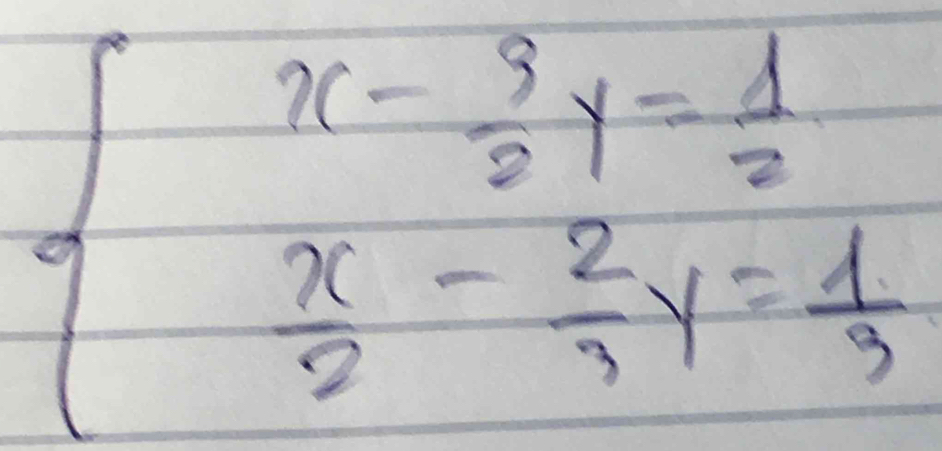 x - 3/2 y = 1/2
x/2 - 2/3 y = 1/3